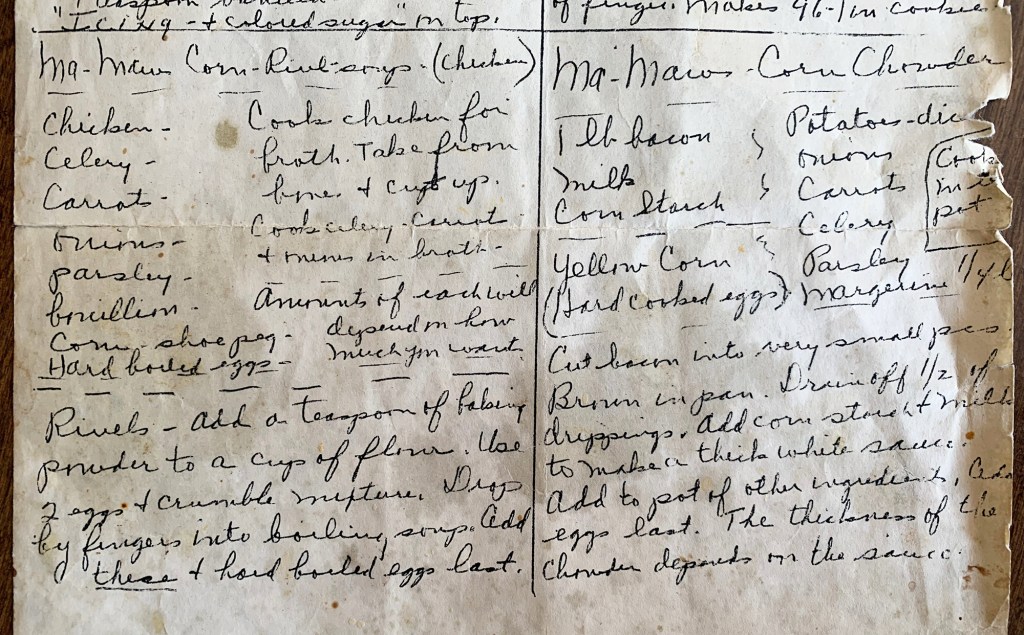 Icing - + colored sugar" on top.
Ma-Maws Corn-Rivel-soup-(chicken)
Chicken-
Celery -
Carrots -
onions-
parsley-
bouillion-
Corn - shoe peg-
Hard boiled eggs-
Cook chicken for
broth. Take from
bone + cut up.
Cook celery-carrots
+ onions in broth-
Amounts of each will
depend on how
much you want.
Rivels - add a teaspoon of baking
powder to a cup of flour. Use
2 eggs + crumble mixture. Drop
by fingers into boiling soup. Add
these + hard boiled eggs last.
of finger. Makes 96-1 in cookies
Ma-Maws - Corn Chowder
1 lb bacon
milk
Corn Starch
Yellow Corn
(Hard cooked eggs)
Potatoes-dic
onions
Carrots
Celery
Parsley
Margerine 1/4 l
Cook
in
pot
Cut bacon into very small pcs.
Brown in pan. Drain off 1/2 of
drippings. Add corn starch + milk
to make a thick white sauce.
Add to pot of other ingredients, Add
eggs last. The thickness of the
chowder depends on the sauce.